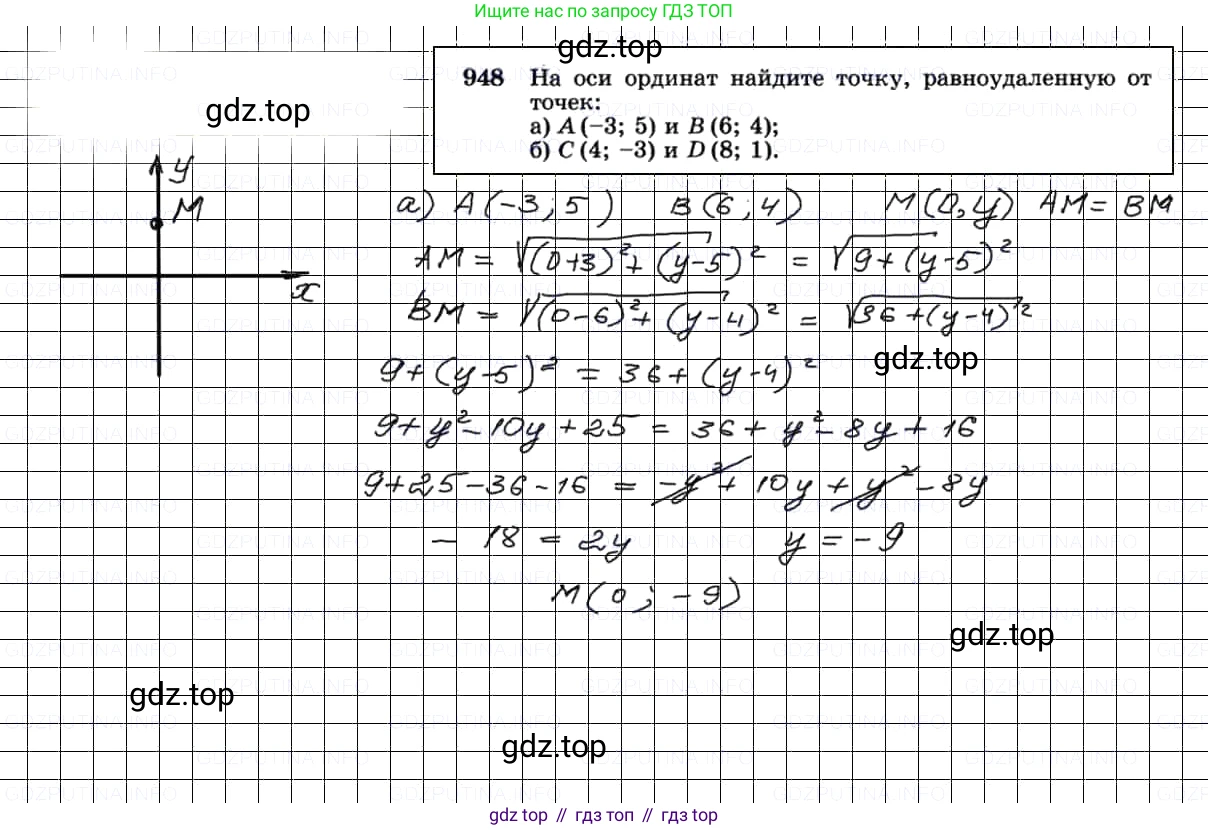 Ищите нас по запросу ГДЗ ТОП
gdz.top
948 На оси ординат найдите точку, равноудаленную от
точек:
а) A (−3; 5) и B (6; 4);
б) C (4; −3) и D (8; 1).
gdz.top
y
M
x
а) A(-3; 5) B(6; 4) M(0, y) AM = BM
AM = √(0+3)² + (y-5)² = √9+(y-5)²
BM = √(0-6)² + (y-4)² = √36+(y-4)²
gdz.top
9+(y-5)² = 36+(y-4)²
9+y²-10y+25 = 36+y²-8y+16
9+25-36-16 = -y²+10y+y²-8y
-18 = 2y y = -9
M(0; -9)
gdz.top
gdz.top
gdz.top
GDZPUTINA.INFO
gdz топ // гдз топ // гдз top